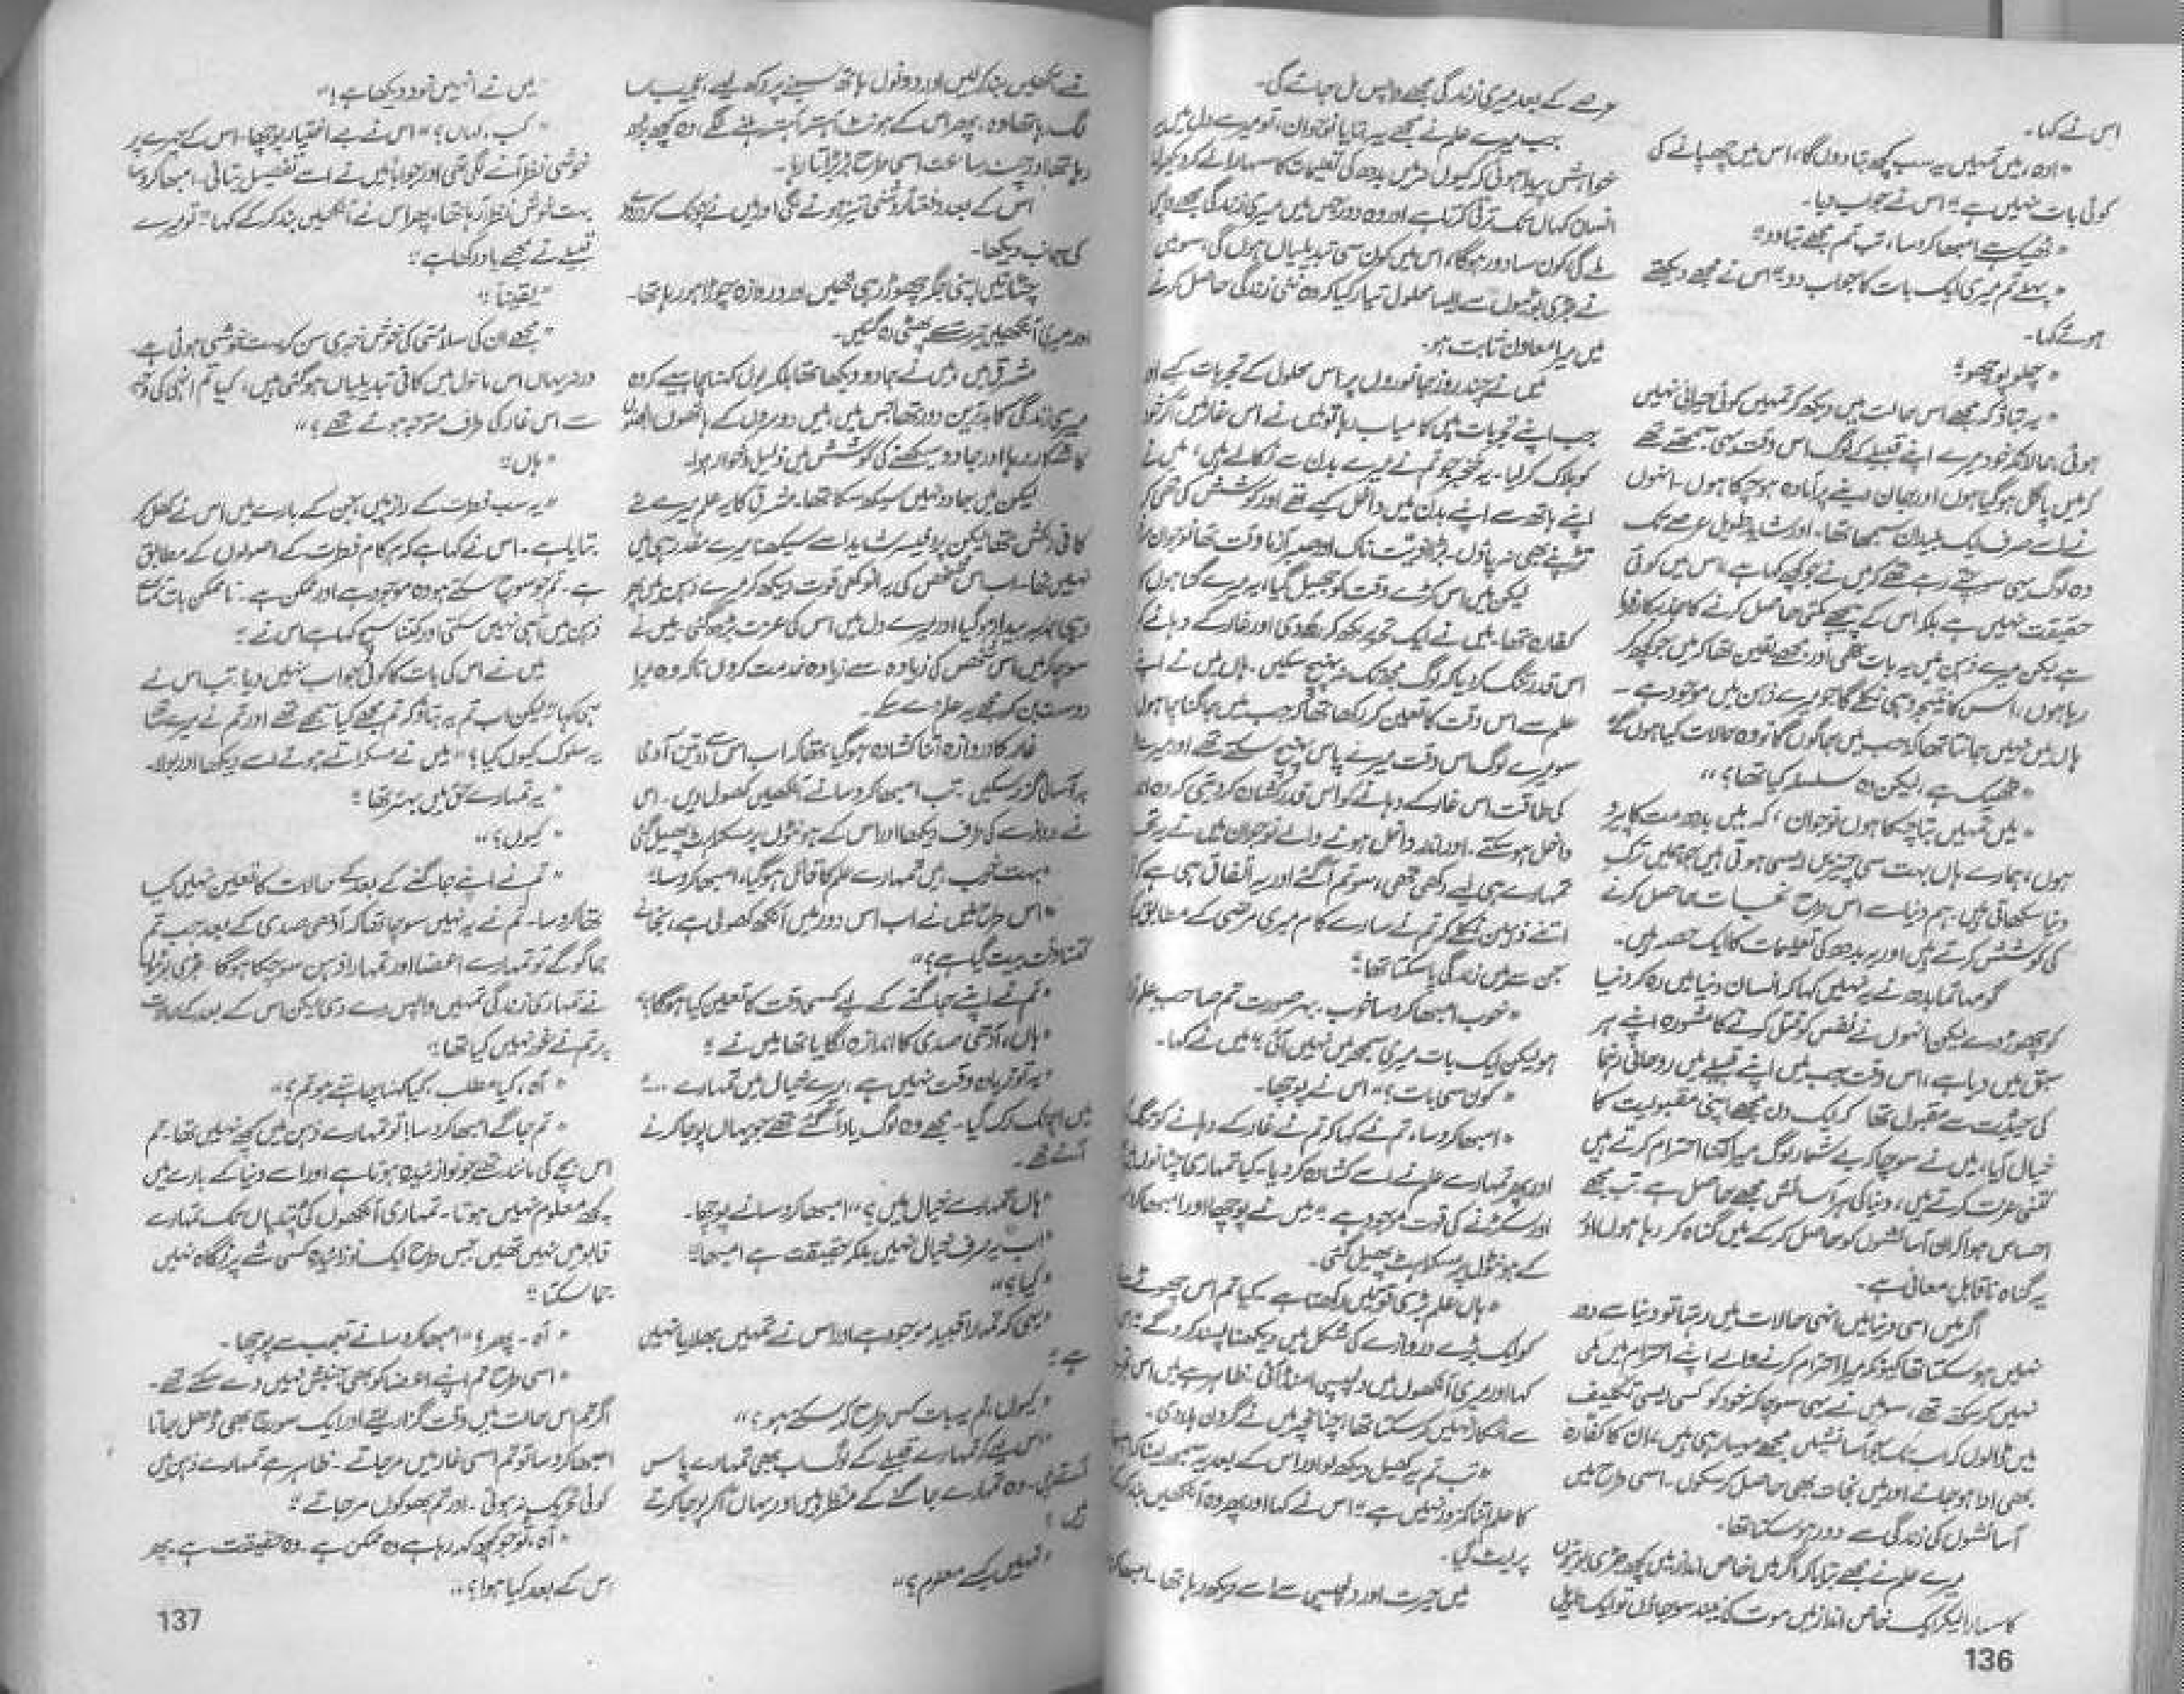 اس نے کہا۔
"اوہ، میں تمہیں یہ سب کچھ بتا دوں گا، اس میں چھپانے کی
کوئی بات نہیں ہے" اس نے جواب دیا۔
"ٹھیک ہے امبھا کروسا، تب تم مجھے بتا دو"
"پہلے تم میری ایک بات کا جواب دو" اس نے مجھے دیکھتے
ہوئے کہا۔
"چلو پوچھو"
"یہ بتاؤ کہ مجھے اس حالت میں دیکھ کر تمہیں کوئی حیرانی نہیں
ہوئی، حالانکہ خود میرے اپنے قبیلے کے لوگ اس وقت یہی سمجھتے تھے
کہ میں پاگل ہو گیا ہوں اور جان دینے پر آمادہ ہو چکا ہوں۔ انہوں
نے اسے صرف ایک بلیدان سمجھا تھا۔ اور شاید طویل عرصے تک
وہ لوگ یہی سوچتے رہے تھے کہ میں نے جو کچھ کہا ہے، اس میں کوئی
حقیقت نہیں ہے بلکہ اس کے پیچھے مکتی حاصل کرنے کا جذبہ کارفرما
ہے لیکن میرے ذہن میں یہ بات تھی اور مجھے یقین تھا کہ میں جو کچھ کر
رہا ہوں، اس کا نتیجہ وہی نکلے گا جو میرے ذہن میں موجود ہے۔
ہاں میں نہیں جانتا تھا کہ جب میں جاگوں گا تو وہ حالات کیا ہوں گے"
"ٹھیک ہے، لیکن وہ سلسلہ کیا تھا؟"
"میں تمہیں بتا چکا ہوں نوجوان، کہ میں بدھ مت کا پیرو
ہوں، ہمارے ہاں بہت سی چیزیں ایسی ہوتی ہیں جو ہمیں ترک
دنیا سکھاتی ہیں۔ ہم دنیا سے اس طرح نجات حاصل کرنے
کی کوشش کرتے ہیں اور یہ بدھ کی تعلیمات کا ایک حصہ ہیں۔
گو مہاتما بدھ نے یہ نہیں کہا کہ انسان دنیا میں رہ کر دنیا
کو چھوڑ دے لیکن انہوں نے نفس کو قتل کرنے کا مشورہ اپنے ہر
سبق میں دیا ہے، اس وقت جب میں اپنے قبیلے میں روحانی رہنما
کی حیثیت سے مقبول تھا کہ ایک دن مجھے اپنی مقبولیت کا
خیال آیا، میں نے سوچا کہ بے شمار لوگ میرا کتنا احترام کرتے ہیں
کتنی عزت کرتے ہیں، دنیا کی ہر آسائش مجھے حاصل ہے۔ تب مجھے
احساس ہوا کہ ان آسائشوں کو حاصل کر کے میں گناہ کر رہا ہوں اور
یہ گناہ ناقابل معافی ہے۔
اگر میں اسی دنیا میں انہی حالات میں رہتا تو دنیا سے دور
نہیں ہو سکتا تھا کیونکہ میرا احترام کرنے والے اپنے احترام میں کمی
نہیں کر سکتے تھے، سو میں نے یہی سوچا کہ خود کو کسی ایسی تکلیف
میں ڈالوں کہ اب تک جو آسائشیں مجھے مہیا رہی ہیں، ان کا کفارہ
بھی ادا ہو جائے اور میں نجات بھی حاصل کر سکوں۔ اسی طرح میں
آسائشوں کی زندگی سے دور ہو سکتا تھا۔
میرے علم نے مجھے بتایا کہ اگر میں خاص انداز میں کچھ جڑی بوٹیوں
کا سہارا لیکر ایک خاص انداز میں موت کی نیند سو جاؤں تو ایک طویل
عرصے کے بعد میری زندگی مجھے واپس مل جائے گی۔
جب میرے علم نے مجھے یہ بتایا نوجوان، تو میرے دل میں یہ
خواہش پیدا ہوئی کہ کیوں نہ میں بدھ کی تعلیمات کا سہارا لے کر دیکھوں
انسان کہاں تک ترقی کرتا ہے اور وہ دور جس میں میری زندگی مجھے واپس
ملے گی کون سا دور ہوگا، اس میں کون سی تبدیلیاں ہوں گی، سو میں
نے جڑی بوٹیوں سے ایسا محلول تیار کیا کہ وہ نئی زندگی حاصل کرنے
میں میرا معاون ثابت ہو۔
میں نے چند روز جانوروں پر اس محلول کے تجربات کیے اور
جب اپنے تجربات میں کامیاب رہا تو میں نے اس غار میں آ کر خود
کو ہلاک کر لیا۔ یہ خنجر جو تم نے میرے بدن سے نکالے ہیں، میں نے
اپنے ہاتھ سے اپنے بدن میں داخل کیے تھے اور کوشش کی تھی کہ
تڑپنے بھی نہ پاؤں۔ بڑا اذیت ناک اور صبر آزما وقت تھا نوجوان
لیکن میں اس کڑے وقت کو جھیل گیا، یہ میرے گناہوں کا
کفارہ تھا۔ میں نے ایک تحریر لکھ کر رکھ دی اور غار کے دہانے کو
اس قدر تنگ کر دیا کہ لوگ مجھ تک نہ پہنچ سکیں۔ ہاں میں نے اپنے
علم سے اس وقت کا تعین کر رکھا تھا کہ جب میں جاگنا چاہوں
سو میرے لوگ اس وقت میرے پاس پہنچ سکتے تھے اور میرے
کی طاقت اس غار کے دہانے کو اس قدر کشادہ کر دیتی کہ وہ
داخل ہو سکتے۔ اور اندر داخل ہونے والے نوجوان میں نے یہ
تمہارے ہی لیے رکھی تھی، سو تم آ گئے اور یہ اتفاق ہی ہے کہ
اتنے ذہین نکلے کہ تم نے سارے کام میری مرضی کے مطابق
جن سے میں زندگی پا سکتا تھا"
"خوب امبھا کروسا خوب۔ بہر صورت تم صاحب علم
ہو لیکن ایک بات میری سمجھ میں نہیں آئی" میں نے کہا۔
"کون سی بات؟" اس نے پوچھا۔
"امبھا کروسا، تم نے کہا کہ تم نے غار کے دہانے کو تنگ
اور پھر تمہارے علم نے اسے کشادہ کر دیا۔ کیا تمہاری چٹانوں میں
اور سکڑنے کی قوت موجود ہے" میں نے پوچھا اور امبھا کروسا
کے ہونٹوں پر مسکراہٹ پھیل گئی۔
"ہاں علم بڑی قوتیں رکھتا ہے۔ کیا تم اس چھوٹے سے
کو ایک بڑے دروازے کی شکل میں دیکھنا پسند کرو گے"
کہا اور میری آنکھوں میں دلچسپی امنڈ آئی۔ ظاہر ہے میں اس
سے انکار نہیں کر سکتا تھا، چنانچہ میں نے گردن ہلا دی۔
"تب تم یہ کھیل دیکھ لو اور اس کے بعد یہ سمجھ لینا کہ امبھا
کا علم اتنا کمزور نہیں ہے" اس نے کہا اور پھر وہ آنکھیں بند کر کے
پر لیٹ گیا۔
میں حیرت اور دلچسپی سے اسے دیکھ رہا تھا۔ امبھا کروسا
136
نے آنکھیں بند کر لیں اور دونوں ہاتھ سینے پر رکھ لیے، عجیب سا
لگ رہا تھا وہ، پھر اس کے ہونٹ آہستہ آہستہ ہلنے لگے، وہ کچھ پڑھ
رہا تھا اور چند ساعت اسی طرح بڑبڑاتا رہا۔
اس کے بعد دفعتاً روشنی تیز ہونے لگی اور میں نے چونک کر دروازے
کی جانب دیکھا۔
چٹانیں اپنی جگہ چھوڑ رہی تھیں اور دروازہ چوڑا ہو رہا تھا۔
اور میری آنکھیں حیرت سے پھٹی رہ گئیں۔
مشرق میں، میں نے جادو دیکھا تھا بلکہ یوں کہنا چاہیے کہ وہ
میری زندگی کا بدترین دور تھا جس میں، میں دوسروں کے ہاتھوں الجھنوں
کا شکار رہا اور جادو سیکھنے کی کوشش میں ذلیل و خوار ہوا۔
لیکن میں جادو نہیں سیکھ سکا تھا۔ مشرق کا یہ علم میرے لئے
کافی دلکش تھا لیکن پروفیسر شاید اسے سیکھنا میرے مقدر ہی میں
نہیں تھا۔ اب اس شخص کی یہ انوکھی قوت دیکھ کر میرے ذہن میں پھر
وہی جذبہ بیدار ہو گیا اور میرے دل میں اس کی عزت بڑھ گئی۔ میں نے
سوچا کہ میں اس شخص کی زیادہ سے زیادہ خدمت کروں تاکہ وہ میرا
دوست بن کر مجھے یہ علم دے سکے۔
غار کا دروازہ اتنا کشادہ ہو گیا تھا کہ اب اس سے دو تین آدمی
بہ آسانی گزر سکیں۔ تب امبھا کروسا نے آنکھیں کھول دیں۔ اس
نے دروازے کی طرف دیکھا اور اس کے ہونٹوں پر مسکراہٹ پھیل گئی
"بہت خوب میں تمہارے علم کا قائل ہو گیا، امبھا کروسا"
"اس طرح میں نے اب اس دور میں آنکھ کھولی ہے، نجانے
کتنا وقت بیت گیا ہے؟"
"تم نے اپنے جاگنے کے لیے کسی وقت کا تعین کیا ہوگا؟"
"ہاں، آدھی صدی کا اندازہ لگایا تھا میں نے"
"یہ تو زیادہ وقت نہیں ہے، میرے خیال میں تمہارے ..."
میں اچانک رک گیا۔ مجھے وہ لوگ یاد آ گئے تھے جو یہاں پوجا کرنے
آئے تھے۔
"ہاں تمہارے خیال میں؟" امبھا کروسا نے پوچھا۔
"اب یہ صرف خیال نہیں بلکہ حقیقت ہے امبھا"
"کیا؟"
"یہی کہ تمہارا قبیلہ موجود ہے اور اس نے تمہیں بھلایا نہیں
ہے"
"کیوں، تم یہ بات کس طرح کہہ سکتے ہو؟"
"اس لیے کہ تمہارے قبیلے کے لوگ اب بھی تمہارے پاس
آتے ہیں۔ وہ تمہارے جاگنے کے منتظر ہیں اور یہاں آ کر پوجا کرتے
ہیں"
"تمہیں کیسے معلوم؟"
"میں نے انہیں خود دیکھا ہے!"
"کب، کہاں؟" اس نے بے اختیار پوچھا۔ اس کے چہرے پر
خوشی نظر آنے لگی تھی اور جواباً میں نے اسے تفصیل بتائی۔ امبھا کروسا
بہت خوش نظر آ رہا تھا، پھر اس نے آنکھیں بند کر کے کہا۔ "تو میرے
قبیلے نے مجھے یاد رکھا ہے"
"یقیناً"
"مجھے ان کی سلامتی کی خوش خبری سن کر بہت خوشی ہوئی ہے۔
ورنہ یہاں اس ماحول میں کافی تبدیلیاں ہو گئی ہیں، کیا تم انہی کی وجہ
سے اس غار کی طرف متوجہ ہوئے تھے؟"
"ہاں"
"یہ سب فطرت کے راز ہیں جن کے بارے میں اس نے کھل کر
بتایا ہے۔ اس نے کہا ہے کہ ہر کام فطرت کے اصولوں کے مطابق
ہے۔ تم جو سوچ سکتے ہو وہ موجود ہے اور ممکن ہے۔ ناممکن بات تمہارے
ذہن میں آ ہی نہیں سکتی اور کتنا سچ کہا ہے اس نے"
میں نے اس کی بات کا کوئی جواب نہیں دیا، تب اس نے
ہی کہا "لیکن اب تم یہ بتاؤ کہ تم مجھے کیا سمجھے تھے اور تم نے میرے ساتھ
یہ سلوک کیوں کیا؟" میں نے مسکراتے ہوئے اسے دیکھا اور بولا۔
"یہ تمہارے حق میں بہتر تھا"
"کیوں؟"
"تم نے اپنے جاگنے کے بعد کے حالات کا تعین نہیں کیا
تھا کروسا۔ تم نے یہ نہیں سوچا تھا کہ آدھی صدی کے بعد جب تم
جاگو گے تو تمہارے اعضا اور تمہارا ذہن سو چکا ہوگا۔ جڑی بوٹیوں
نے تمہاری زندگی تمہیں واپس دے دی لیکن اس کے بعد کے حالات
پر تم نے غور نہیں کیا تھا"
"آہ، کیا مطلب، کیا کہنا چاہتے ہو تم؟"
"تم جاگے امبھا کروسا! تو تمہارے ذہن میں کچھ نہیں تھا۔ تم
اس بچے کی مانند تھے جو نوزائیدہ ہوتا ہے اور اسے دنیا کے بارے میں
کچھ معلوم نہیں ہوتا۔ تمہاری آنکھوں کی پتلیاں تک تمہارے
قابو میں نہیں تھیں جس طرح ایک نوزائیدہ کسی شے پر نگاہ نہیں
جما سکتا"
"آہ۔ پھر؟" امبھا کروسا نے تعجب سے پوچھا۔
"اسی طرح تم اپنے اعضا کو بھی جنبش نہیں دے سکتے تھے۔
اگر تم اس حالت میں وقت گزار لیتے اور ایک سورج بھی ڈھل جاتا
امبھا کروسا تو تم اسی غار میں مر جاتے۔ ظاہر ہے تمہارے ذہن میں
کوئی تحریک نہ ہوتی۔ اور تم بھوکوں مر جاتے"
"آہ، تو جو کچھ کہہ رہا ہے وہ ممکن ہے۔ وہ حقیقت ہے۔ پھر
اس کے بعد کیا ہوا؟"
137